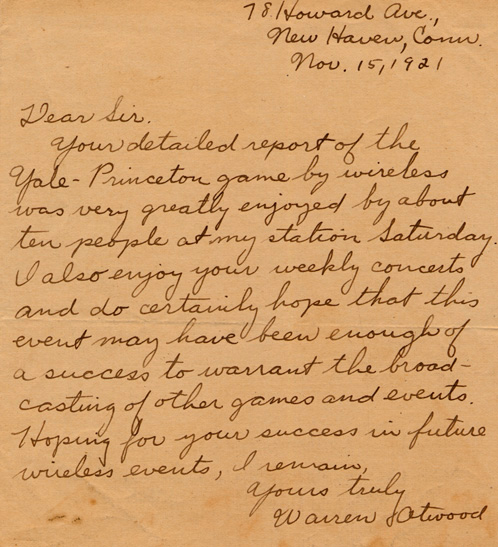 78 Howard Ave.,
New Haven, Conn.
Nov. 15, 1921
Dear Sir.
Your detailed report of the
Yale-Princeton game by wireless
was very greatly enjoyed by about
ten people at my station Saturday.
I also enjoy your weekly concerts
and do certainly hope that this
event may have been enough of
a success to warrant the broad-
casting of other games and events.
Hoping for your success in future
wireless events, I remain,
Yours truly
Warren Atwood